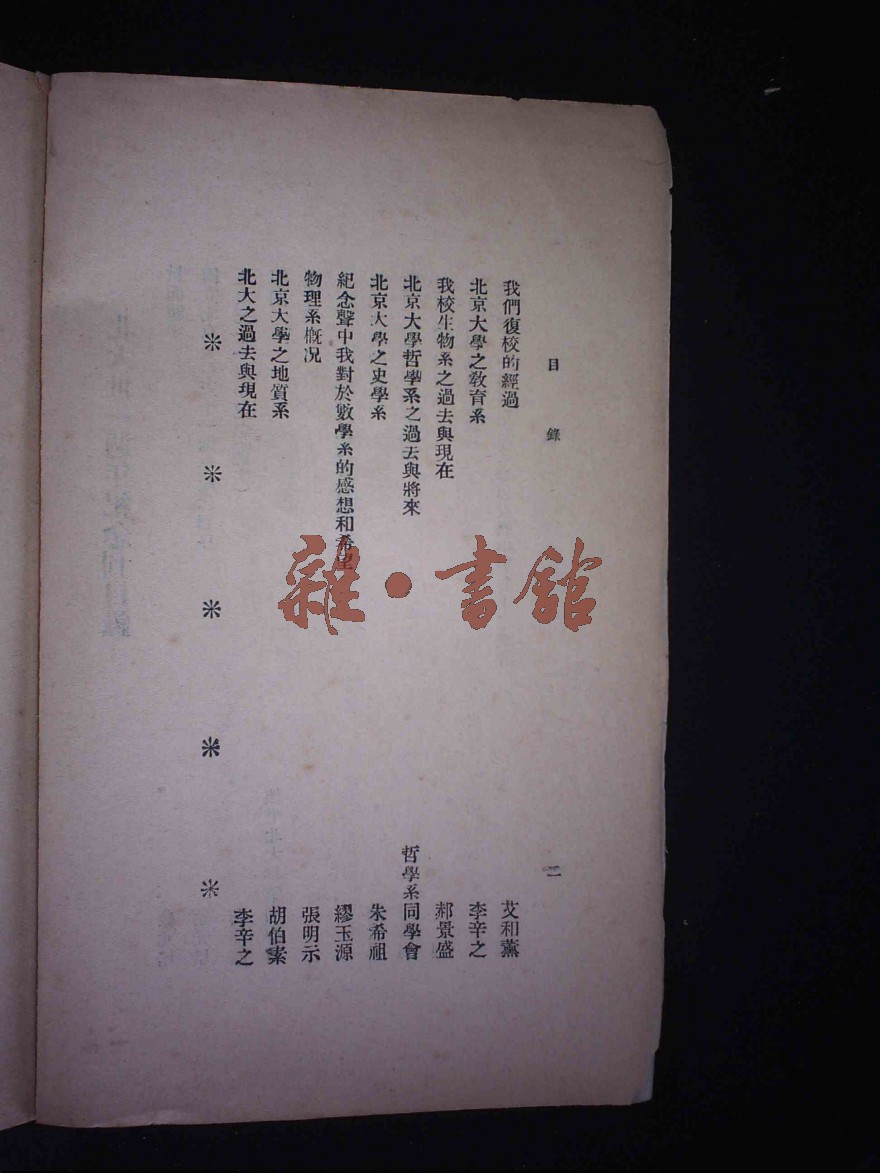 目錄
二
我們復校的經過
艾和薰
北京大學之敎育系
李辛之
我校生物系之過去與現在
郝景盛
北京大學哲學系之過去與將來
哲學系同學會
北京大學之史學系
朱希祖
紀念聲中我對於數學系的感想和希望
繆玉源
物理系槪況
張明示
北京大學之地質系
胡伯素
北大之過去與現在
李辛之
＊＊＊＊＊
雜·書館